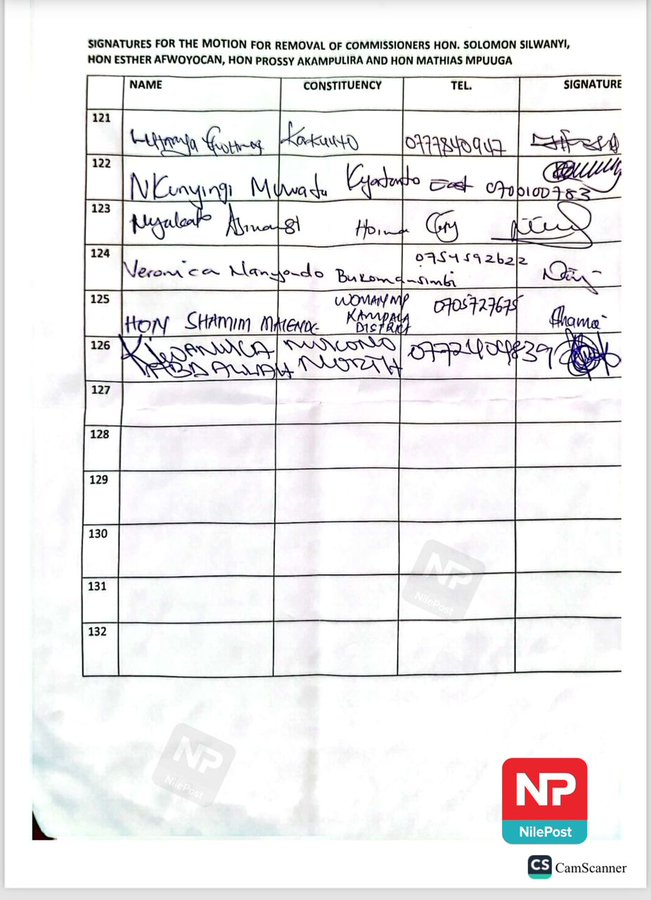 SIGNATURES FOR THE MOTION FOR REMOVAL OF COMMISSIONERS HON. SOLOMON SILWANYI,
HON ESTHER AFWOYOCAN, HON PROSSY AKAMPULIRA AND HON MATHIAS MPUUGA
NAME CONSTITUENCY TEL. SIGNATURE
121 Kakuuto 0777840947
122 NKunyingi Muwada Kyadondo East 0700100783
123 Asinansi Hoima City
124 Veronica Nanyondo Bukomansimbi 0754592622
125 HON SHAMIM MALENDE WOMAN MP KAMPALA DISTRICT 0705727675
126 KIWANUKA ABDALLAH MUKONO NORTH
127
128
129
130
131
132
NP
NilePost
NP
NilePost
NP
NilePost
CS CamScanner